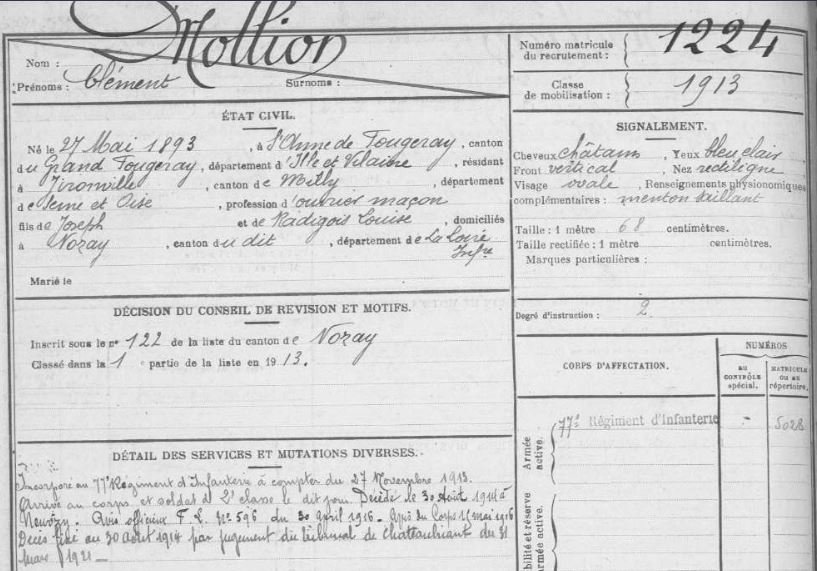 Mollion
Nom :
Prénoms : Clément Surnoms :
Numéro matricule du recrutement : 1224
Classe de mobilisation : 1913
ÉTAT CIVIL.
Né le 27 Mai 1893, à Ste Anne de Fougeray, canton
du Grand Fougeray, département d'Ille et Vilaine, résidant
à Tironville, canton de Milly, département
de Seine et Oise, profession d'ouvrier maçon
fils de Joseph et de Radigois Louise, domiciliés
à Nozay, canton du dit, département de La Loire
Infre
Marié le
SIGNALEMENT.
Cheveux châtains, Yeux bleu clair
Front vertical, Nez rectiligne
Visage ovale, Renseignements physionomiques
complémentaires : menton saillant
Taille : 1 mètre 68 centimètres.
Taille rectifiée : 1 mètre centimètres.
Marques particulières :
Degré d'instruction : 2
DÉCISION DU CONSEIL DE REVISION ET MOTIFS.
Inscrit sous le no 122 de la liste du canton de Nozay
Classé dans la 1e partie de la liste en 1913.
CORPS D'AFFECTATION.
NUMÉROS
AU CONTRÔLE spécial.
MATRICULE OU AU répertoire.
Armée active.
77e Régiment d'Infanterie - 5028
bilité et réserve
armée active.
DÉTAIL DES SERVICES ET MUTATIONS DIVERSES.
Incorporé au 77e Régiment d'Infanterie à compter du 27 Novembre 1913.
Arrivé au corps et soldat de 2e classe le dit jour. Décédé le 30 Août 1914 à
Avis officieux F. L. No 596 du 30 april 1916. Avis du Corps 15 mai 1916
Décès fixé au 30 Août 1914 par jugement du tribunal de Chateaubriant du 31
Mars 1921